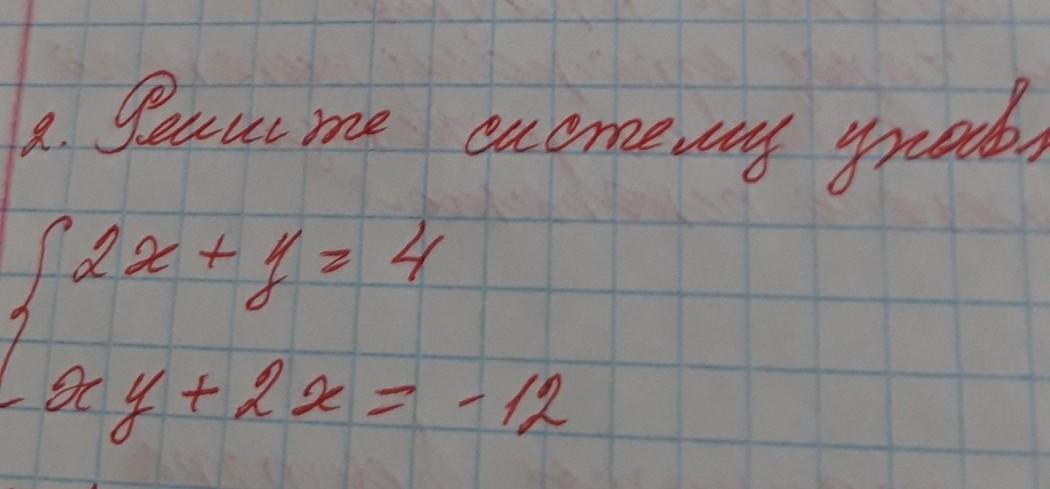 2. Решите систему уравн
2x + y = 4
xy + 2x = -12